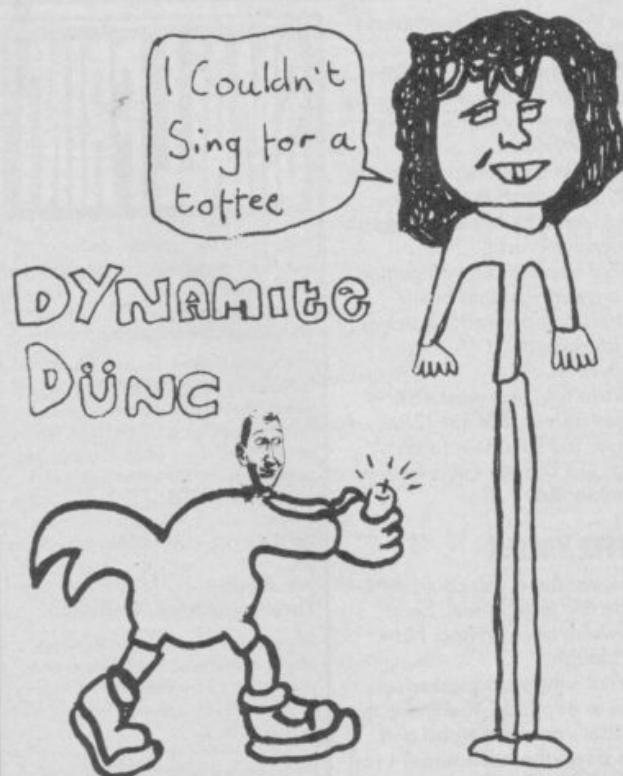 I Couldn't
Sing for a
toffee
DYNAMITE
DÜNC